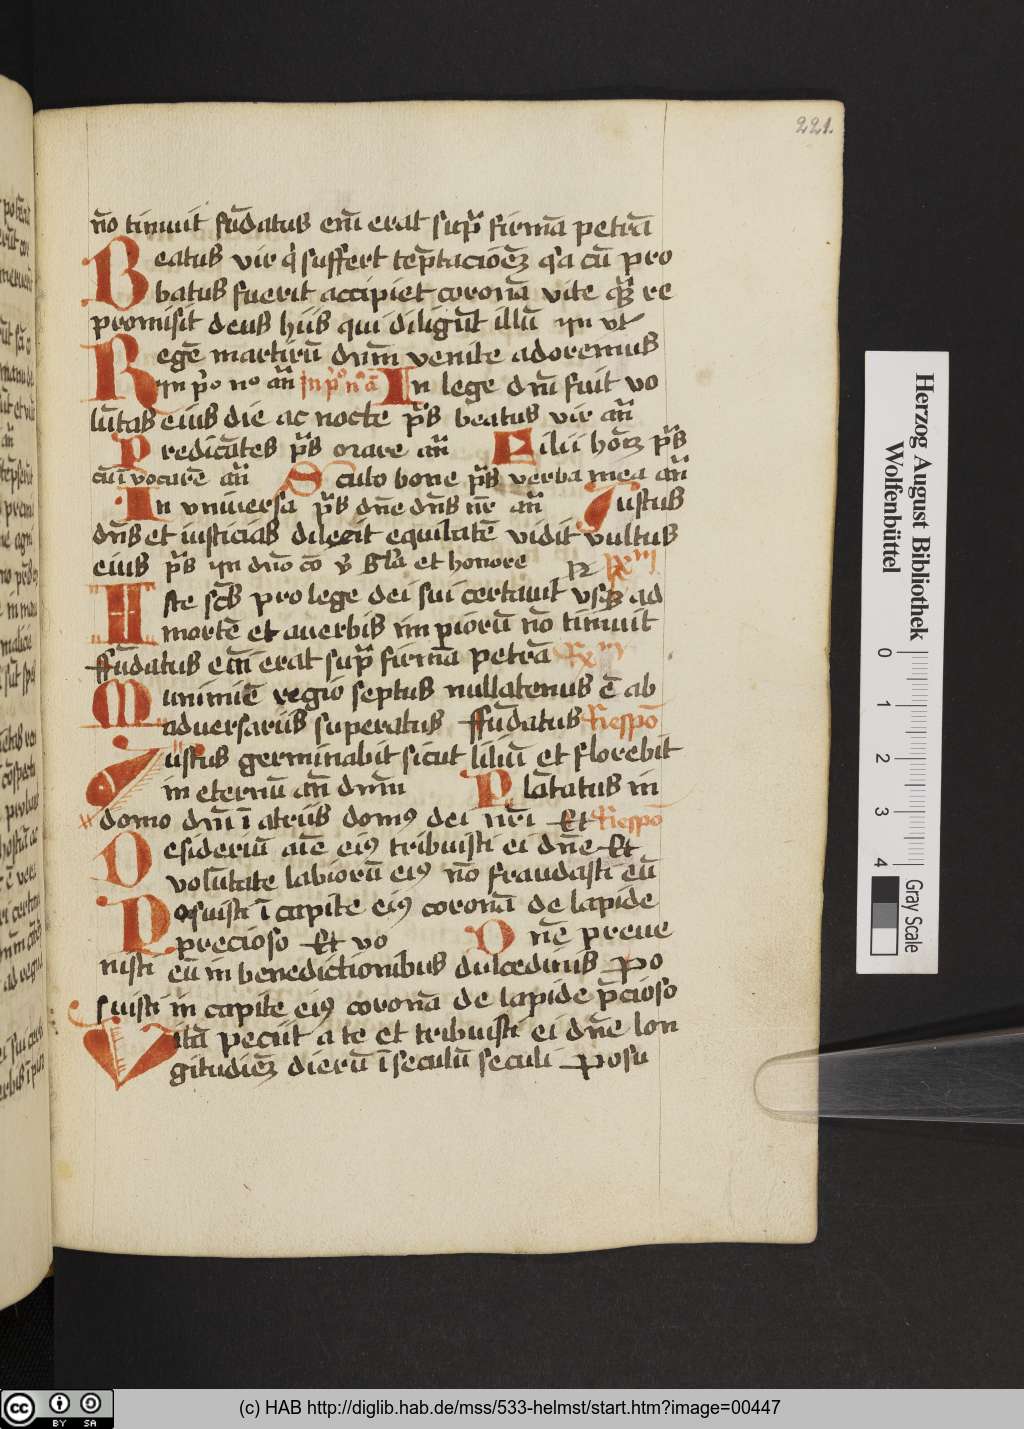 221.
n̄o timuit fūdatus em̄ erat sup̄ firmā petrā
Beatus vir q̄ suffert tēptacioēz q̄a cū pro
batus fuerit accipiet coronā vite qȝ re
promisit deus hiis qui diligūt illū
Regē martirū dn̄m venite adoremus
In p̄o no an̄ In p̄o n̄o In lege dn̄i fuit vo
lūtas eius die ac nocte p̄s beatus vir an̄
Predicātes p̄s orare an̄ Filii hōīz p̄s
cūī vocarē an̄ Sculo bone p̄s verba mea an̄
In vniuersa p̄s dn̄e dn̄s nr̄ an̄ Iustus
dn̄s et iusticias dilexit equitatē vidit vultus
eius p̄s In dn̄o cō v̄ Gl̄a et honore
Iste sc̄s pro lege dei sui certauit vsqȝ ad
mortē et auerbis impiorū n̄o timuit
ffūdatus em̄ erat sup̄ firmā petrā
Munimiē regio septus nullatenus ē ab
aduersariis superatus ffūdatus Respō
Iustus germinabit sicut liliū et florebit
in eternū an̄ dn̄m Plātatus in
domo dn̄i ī atriis domꝯ dei nr̄i Et Respō
Desideriū aīe eiꝯ tribuisti ei dn̄e Et
volūtate labiorū eiꝯ n̄o fraudasti eū
Posuisti ī capite eiꝯ coronā de lapide
precioso Et vo Qn̄e preue
nisti eū in benedictionibus dulcedinis Po
suisti in capite eiꝯ coronā de lapide p̄cioso
Vitā peciit a te et tribuisti ei dn̄e lon
gitudiēz dierū ī seculū seculi Posu
Herzog August Bibliothek
Wolfenbüttel
0 1 2 3 4
Gray Scale
BY SA
(c) HAB http://diglib.hab.de/mss/533-helmst/start.htm?image=00447